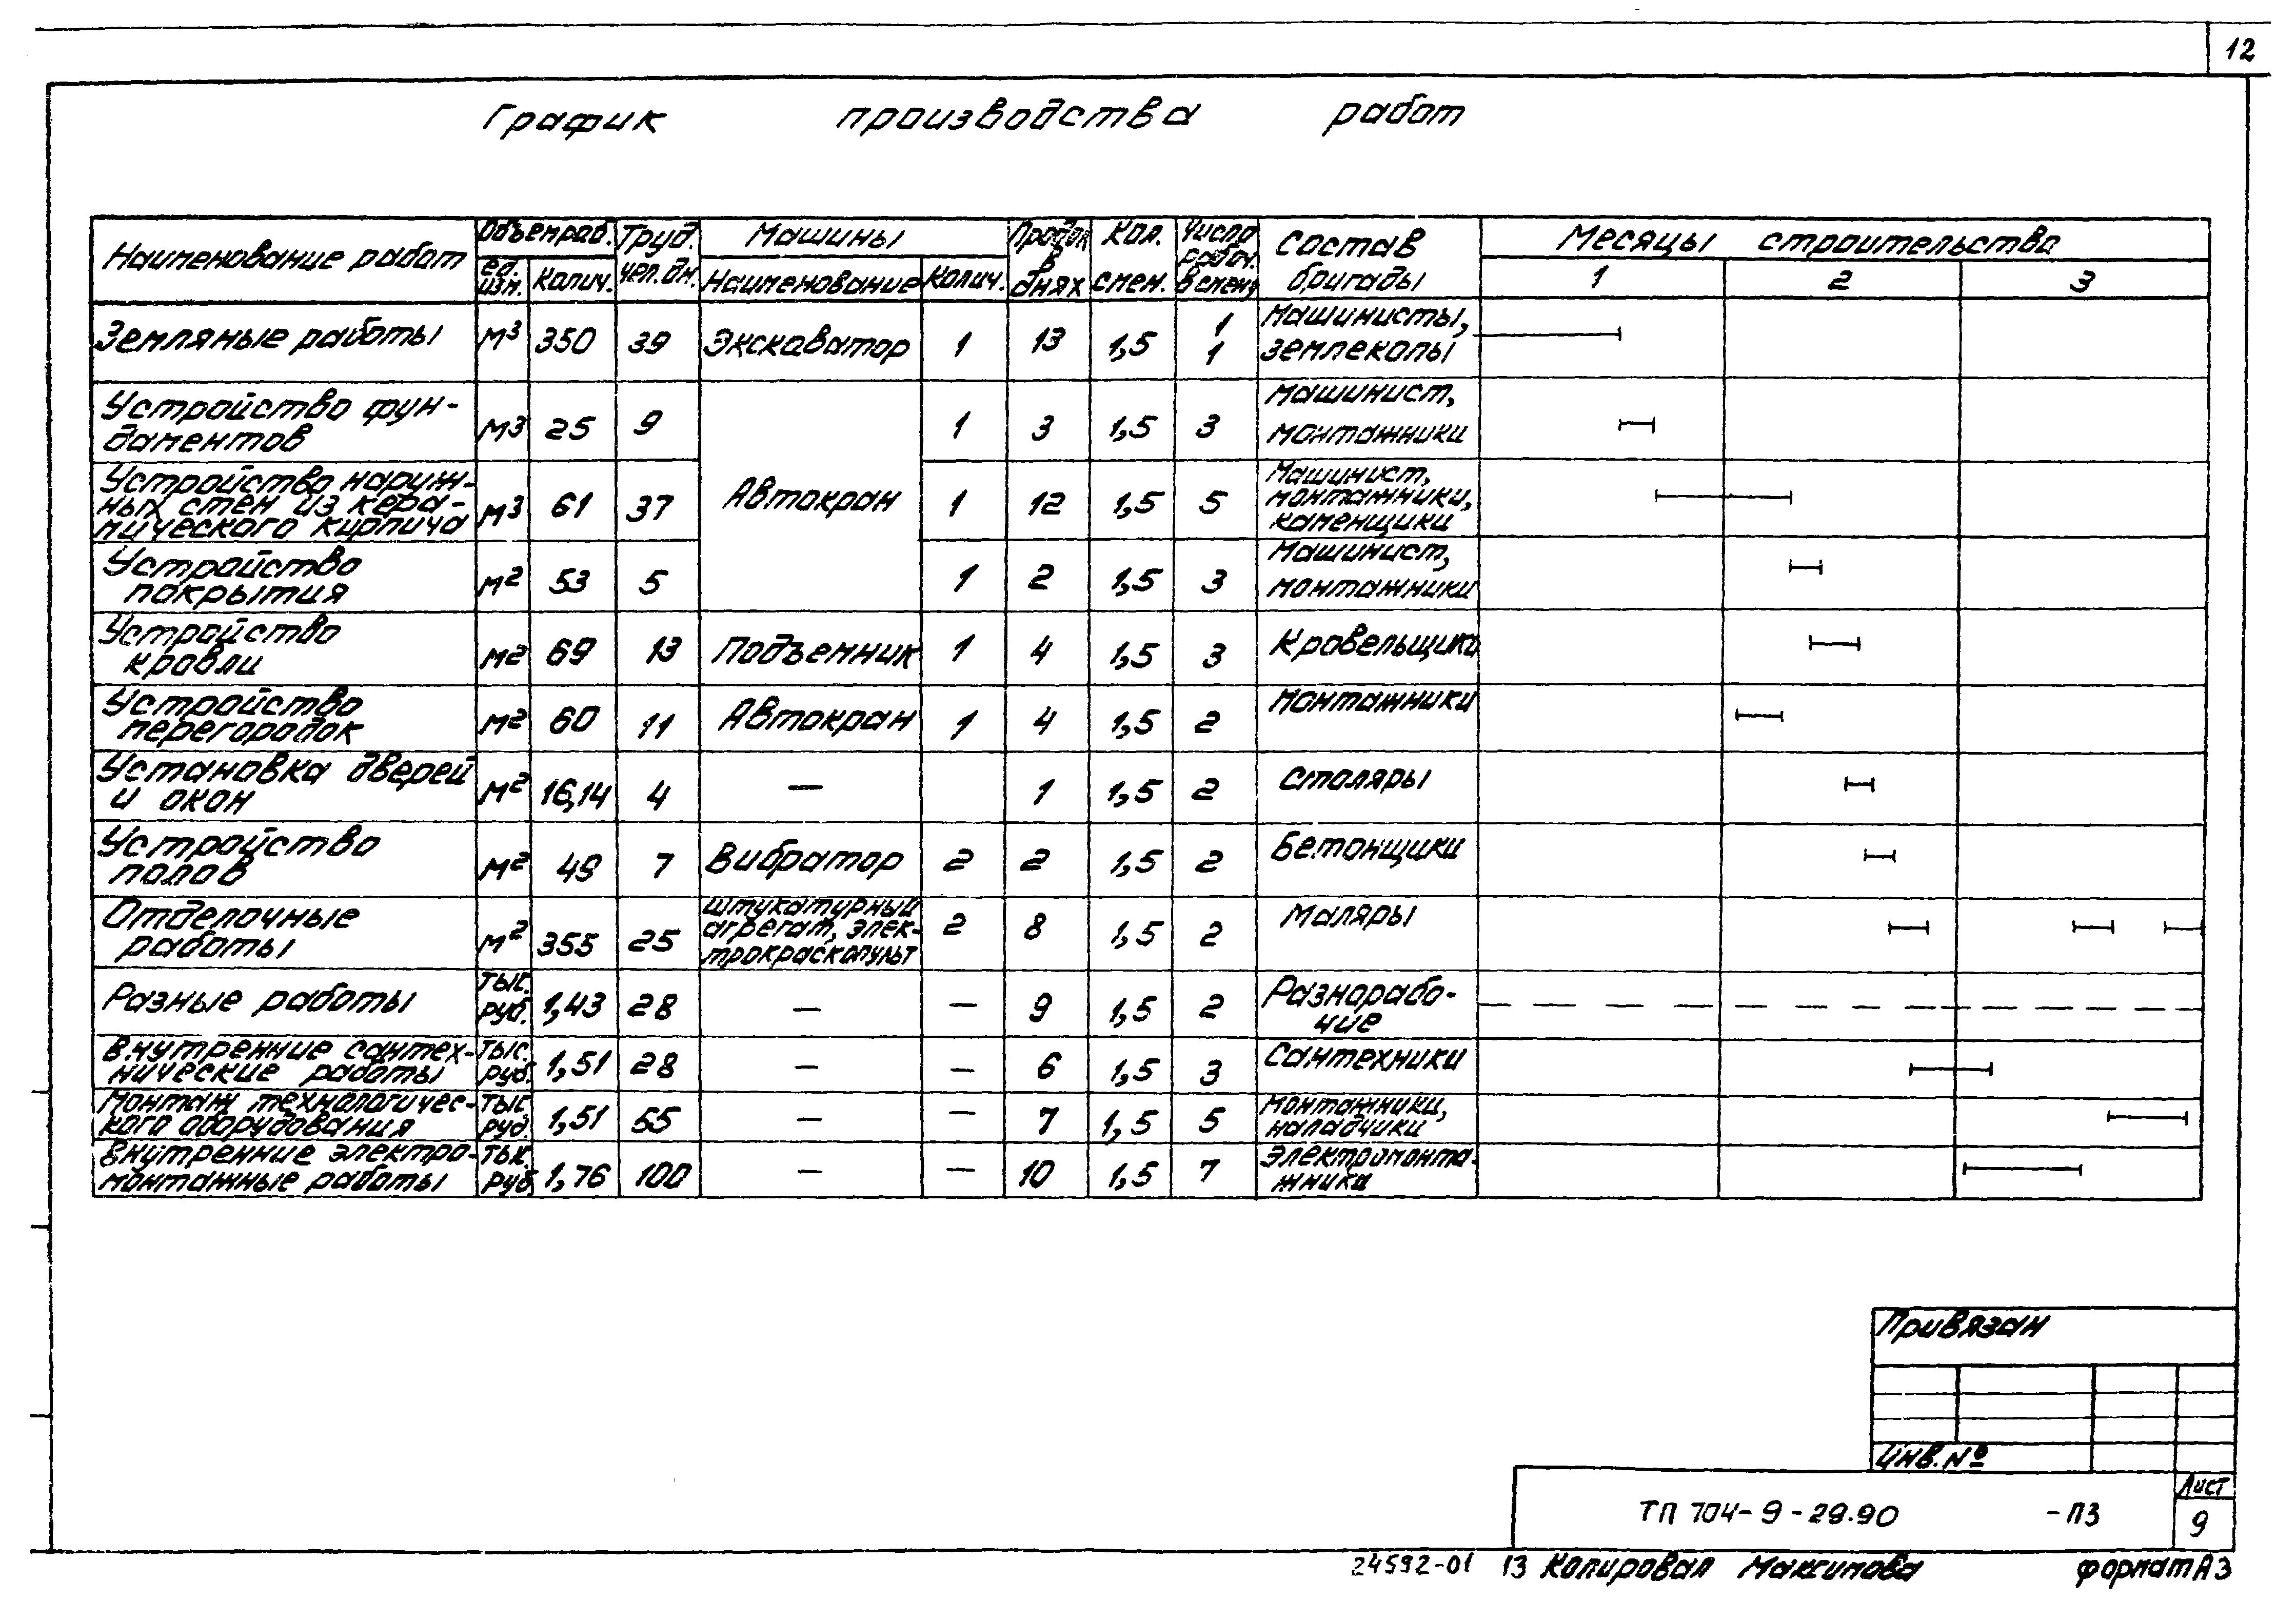 12
График производства работ
Наименование работ
Объем раб.
ед. изм.
Колич.
Труд. чел. дн.
Машины
Наименование
Колич.
Продол в днях
Кол. смен.
Число рабоч. в смену
Состав бригады
Месяцы строительства
1 2 3
Земляные работы м3 350 39 Экскаватор 1 13 1,5 1 1 Машинисты, землекопы
Устройство фун-
даментов м3 25 9 1 3 1,5 3 Машинист, монтажники
Устройство наруж-
ных стен из кера-
мического кирпича м3 61 37 Автокран 1 12 1,5 5 Машинист, монтажники, каменщики
Устройство
покрытия м2 53 5 1 2 1,5 3 Машинист, монтажники
Устройство
кровли м2 69 13 Подъемник 1 4 1,5 3 Кровельщики
Устройство
перегородок м2 60 11 Автокран 1 4 1,5 2 Монтажники
Установка дверей
и окон м2 16,14 4 — 1 1,5 2 Столяры
Устройство
полов м2 49 7 Вибратор 2 2 1,5 2 Бетонщики
Отделочные
работы м2 355 25 штукатурный агрегат, элек-
трокраскопульт 2 8 1,5 2 Маляры
Разные работы тыс. руб. 1,43 28 — — 9 1,5 2 Разнорабо-
чие
Внутренние сантех-
нические работы тыс. руб. 1,51 28 — — 6 1,5 3 Сантехники
Монтаж технологичес-
кого оборудования тыс руб. 1,51 55 — — 7 1,5 5 Монтажники, наладчики
Внутренние электро-
монтажные работы тыс. руб 1,76 100 — — 10 1,5 7 Электромонта-
жники
Привязан
Инв. №
ТП 704-9-29.90 -ПЗ
Лист
9
24592-01 13 Копировал Максимова формат А3